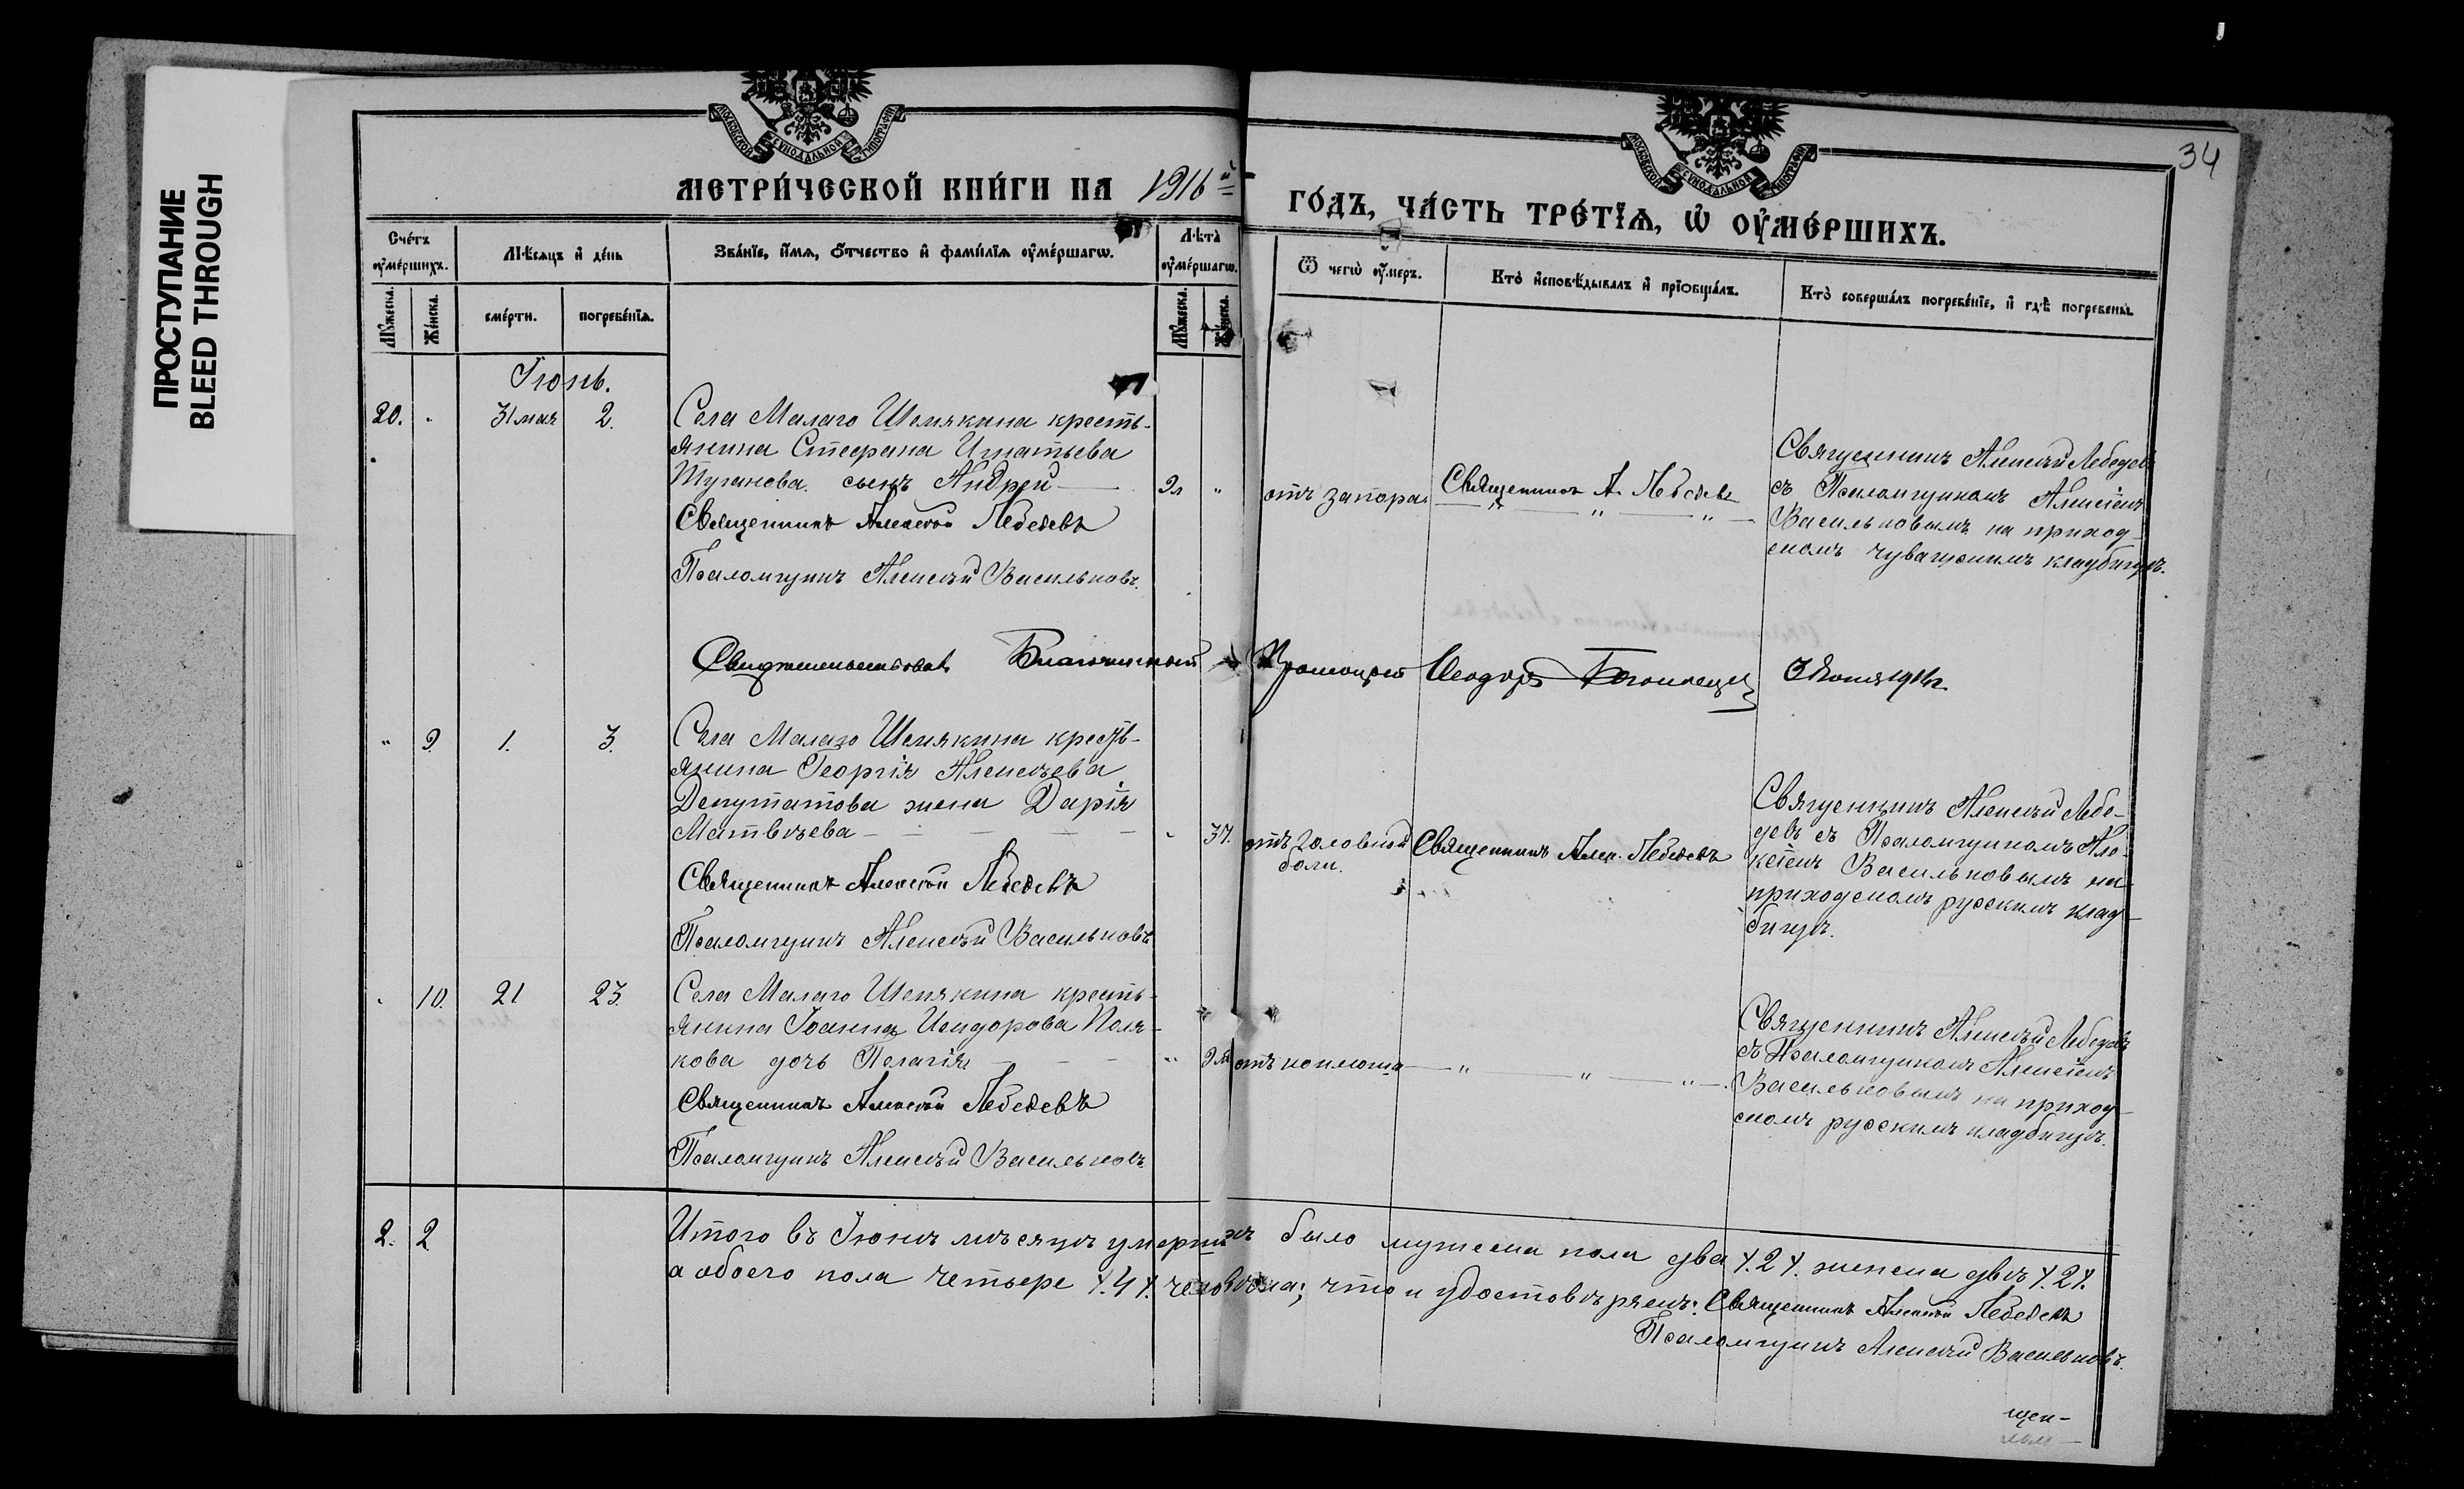 ПРОСТУПАНИЕ
BLEED THROUGH
34
МОСКОВСКОЙ СѴНОДАЛЬНОЙ ТИПОГРАФІИ
МОСКОВСКОЙ СѴНОДАЛЬНОЙ ТИПОГРАФІИ
МЕТРИ́ЧЕСКОЙ КНИ́ГИ НА 1916й
ГО́ДЪ, ЧА́СТЬ ТРЕ́ТІѦ, Ѡ ОУ҆МЕ́РШИХЪ.
Сче́тъ оу҆ме́ршихъ.
Мѣ́сяцъ и҆ де́нь
Зва́нїе, и҆́мя, ѻ҆́тчество и҆ фами́лїя оу҆ме́ршагѡ.
Лѣ́та оу҆ме́ршагѡ.
Ѿ чегѡ̀ оу҆́меръ.
Кто̀ и҆сповѣ́дывалъ и҆ прїѡбща́лъ.
Кто̀ соверша́лъ погребе́нїе, и҆ гдѣ̀ погребены̀.
Мꙋ́жеска. Же́нска. сме́рти. погребе́нїя. Мꙋ́жеска. Же́нска.
Іюнь.
20. " 31 мая 2.
Села Малаго Шемякина кресть-
янина Стефана Игнатьева
Туганова сынъ Андрей
Священникъ Алексѣй Лебедевъ
Псаломщикъ Алексѣй Васильковъ.
"
отъ запора
Священникъ А. Лебедевъ
" " "
Священникъ Алексѣй Лебедевъ
съ Псаломщикомъ Алексѣемъ
Васильковымъ на приход-
скомъ чувашскимъ кладбищѣ.
Свидѣтельствовалъ Благочинный Протоіерей Ѳеодоръ 3 Іюня 1916 г.
" 9. 1. 3.
Села Малаго Шемякина кресть-
янина Георгія Алексѣева
Депутатова жена Дарія
Матвѣева
Священникъ Алексѣй Лебедевъ
Псаломщикъ Алексѣй Васильковъ
37.
отъ головной
боли.
Священникъ Алек. Лебедевъ
Священникъ Алексѣй Лебе-
девъ съ Псаломщикомъ Але-
ксѣемъ Васильковымъ на
приходскомъ русскимъ клад-
бищѣ.
" 10. 21 23.
Села Малаго Шемякина кресть-
янина Іоанна Исидорова Поля-
кова дочь Пелагія
Священникъ Алексѣй Лебедевъ
Псаломщикъ Алексѣй Васильковъ.
"
отъ коклюша
" " "
Священникъ Алексѣй Лебедевъ
съ Псаломщикомъ Алексѣемъ
Васильковымъ на приход-
скомъ русскимъ кладбищѣ.
2. 2
Итого въ Іюнѣ мѣсяцѣ умершихъ было мужеска пола два /.2/. женска двѣ /.2/.
а обоего пола четыре /.4/. человѣка; что и удостовѣряемъ: Священникъ Алексѣй Лебедевъ
Псаломщикъ Алексѣй Васильковъ.
щен-